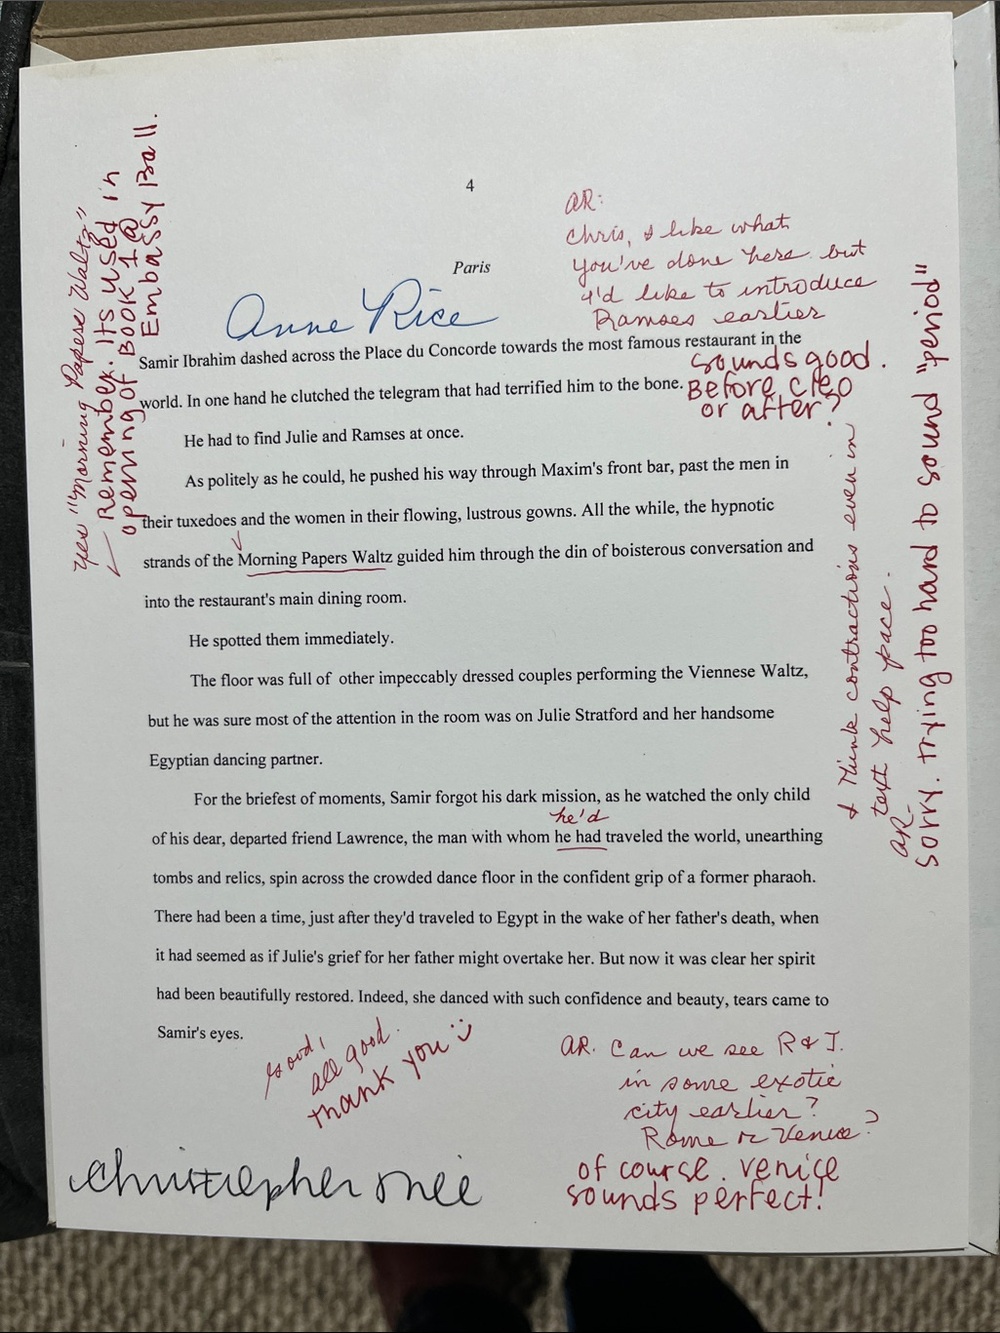 4
AR:
Chris, I like what
you've done here but
I'd like to introduce
Ramses earlier
sounds good.
Before Cleo
or after?
Paris
Anne Rice
Samir Ibrahim dashed across the Place du Concorde towards the most famous restaurant in the
world. In one hand he clutched the telegram that had terrified him to the bone.
He had to find Julie and Ramses at once.
As politely as he could, he pushed his way through Maxim's front bar, past the men in
their tuxedoes and the women in their flowing, lustrous gowns. All the while, the hypnotic
strands of the Morning Papers Waltz guided him through the din of boisterous conversation and
into the restaurant's main dining room.
He spotted them immediately.
The floor was full of other impeccably dressed couples performing the Viennese Waltz,
but he was sure most of the attention in the room was on Julie Stratford and her handsome
Egyptian dancing partner.
For the briefest of moments, Samir forgot his dark mission, as he watched the only child
he'd
of his dear, departed friend Lawrence, the man with whom he had traveled the world, unearthing
tombs and relics, spin across the crowded dance floor in the confident grip of a former pharaoh.
There had been a time, just after they'd traveled to Egypt in the wake of her father's death, when
it had seemed as if Julie's grief for her father might overtake her. But now it was clear her spirit
had been beautifully restored. Indeed, she danced with such confidence and beauty, tears came to
Samir's eyes.
Yes "Morning Papers Waltz"
Remember. Its used in
opening of Book 1 @
Embassy Ball.
I think contractions even in
text help pace.
AR-
Sorry. trying too hard to sound "period"
Good,
all good.
Thank you :)
AR. Can we see R & J.
in some exotic
city earlier?
Rome or Venice?
of course. Venice
sounds perfect!
Christopher Rice